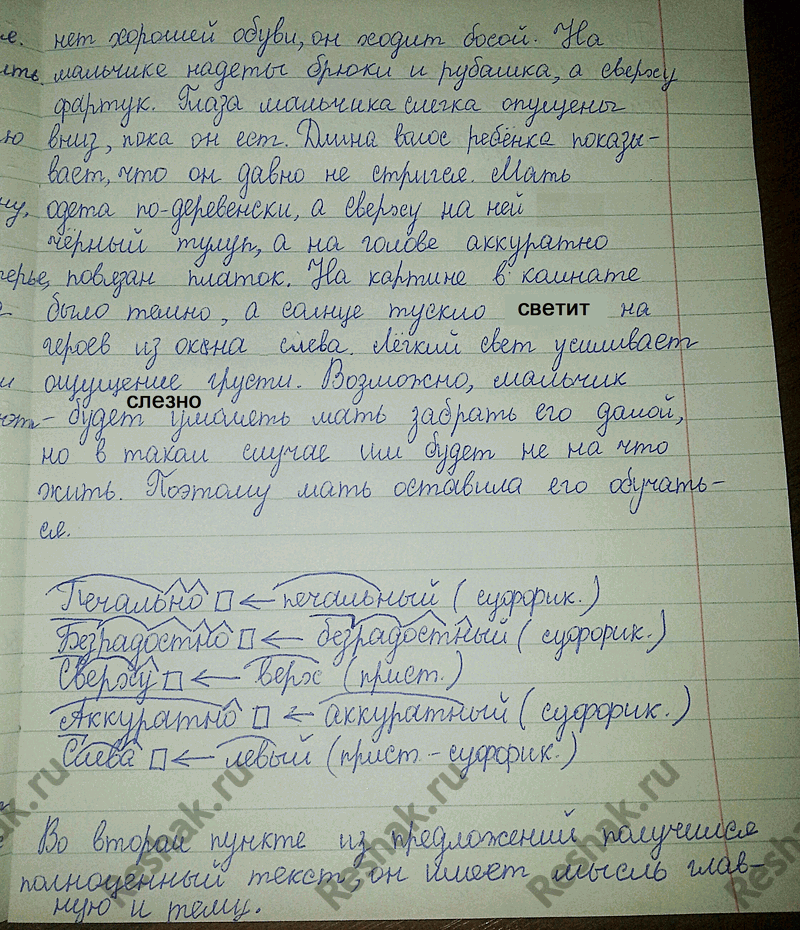 е. нет хорошей обуви, он ходит босой. На
ить мальчике надеты брюки и рубашка, а сверху
фартук. Глаза мальчика слегка опущены
ю вниз, пока он ест. Длина волос ребёнка показы-
вает, что он давно не стригся. Мать
ну, одета по-деревенски, а сверху на ней
чёрный тулуп, а на голове аккуратно
перье, повязан платок. На картине в комнате
было темно, а солнце тускло светит на
героев из окна слева. Лёгкий свет усиливает
и ощущение грусти. Возможно, мальчик
слезно
будет умолять мать забрать его домой,
но в таком случае им будет не на что
жить. Поэтому мать оставила его обучать-
ся.
Печально ← печальный (суффикс.)
Безрадостно ← безрадостный (суффикс.)
Сверху ← верх (прист.)
Аккуратно ← аккуратный (суффикс.)
Слева ← левый (прист-суффикс.)
Во втором пункте из предложений получился
полноценный текст, он имеет мысль глав-
ную и тему.
Reshak.ru
Reshak.ru
Reshak.ru
Reshak.ru
Reshak.ru